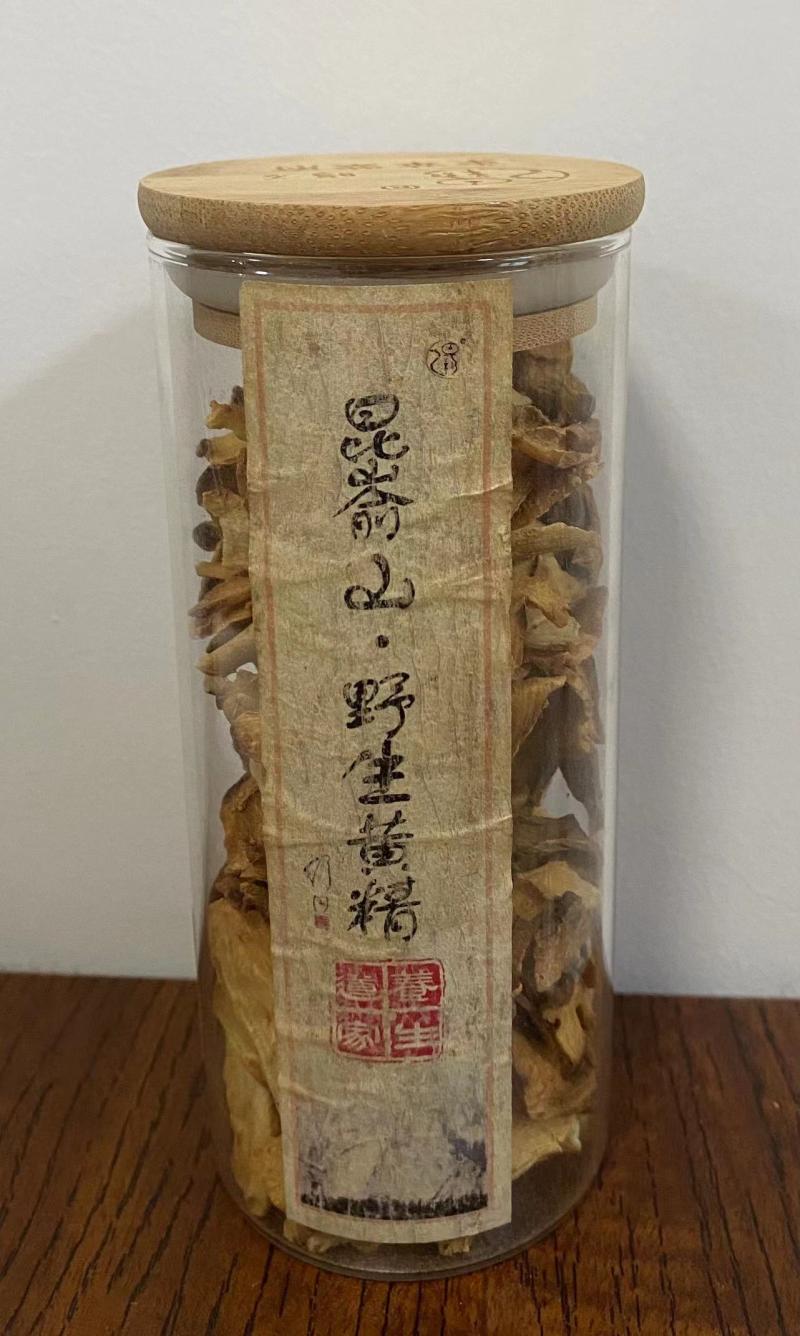 昆嵛山·野生黄精
養生
道家